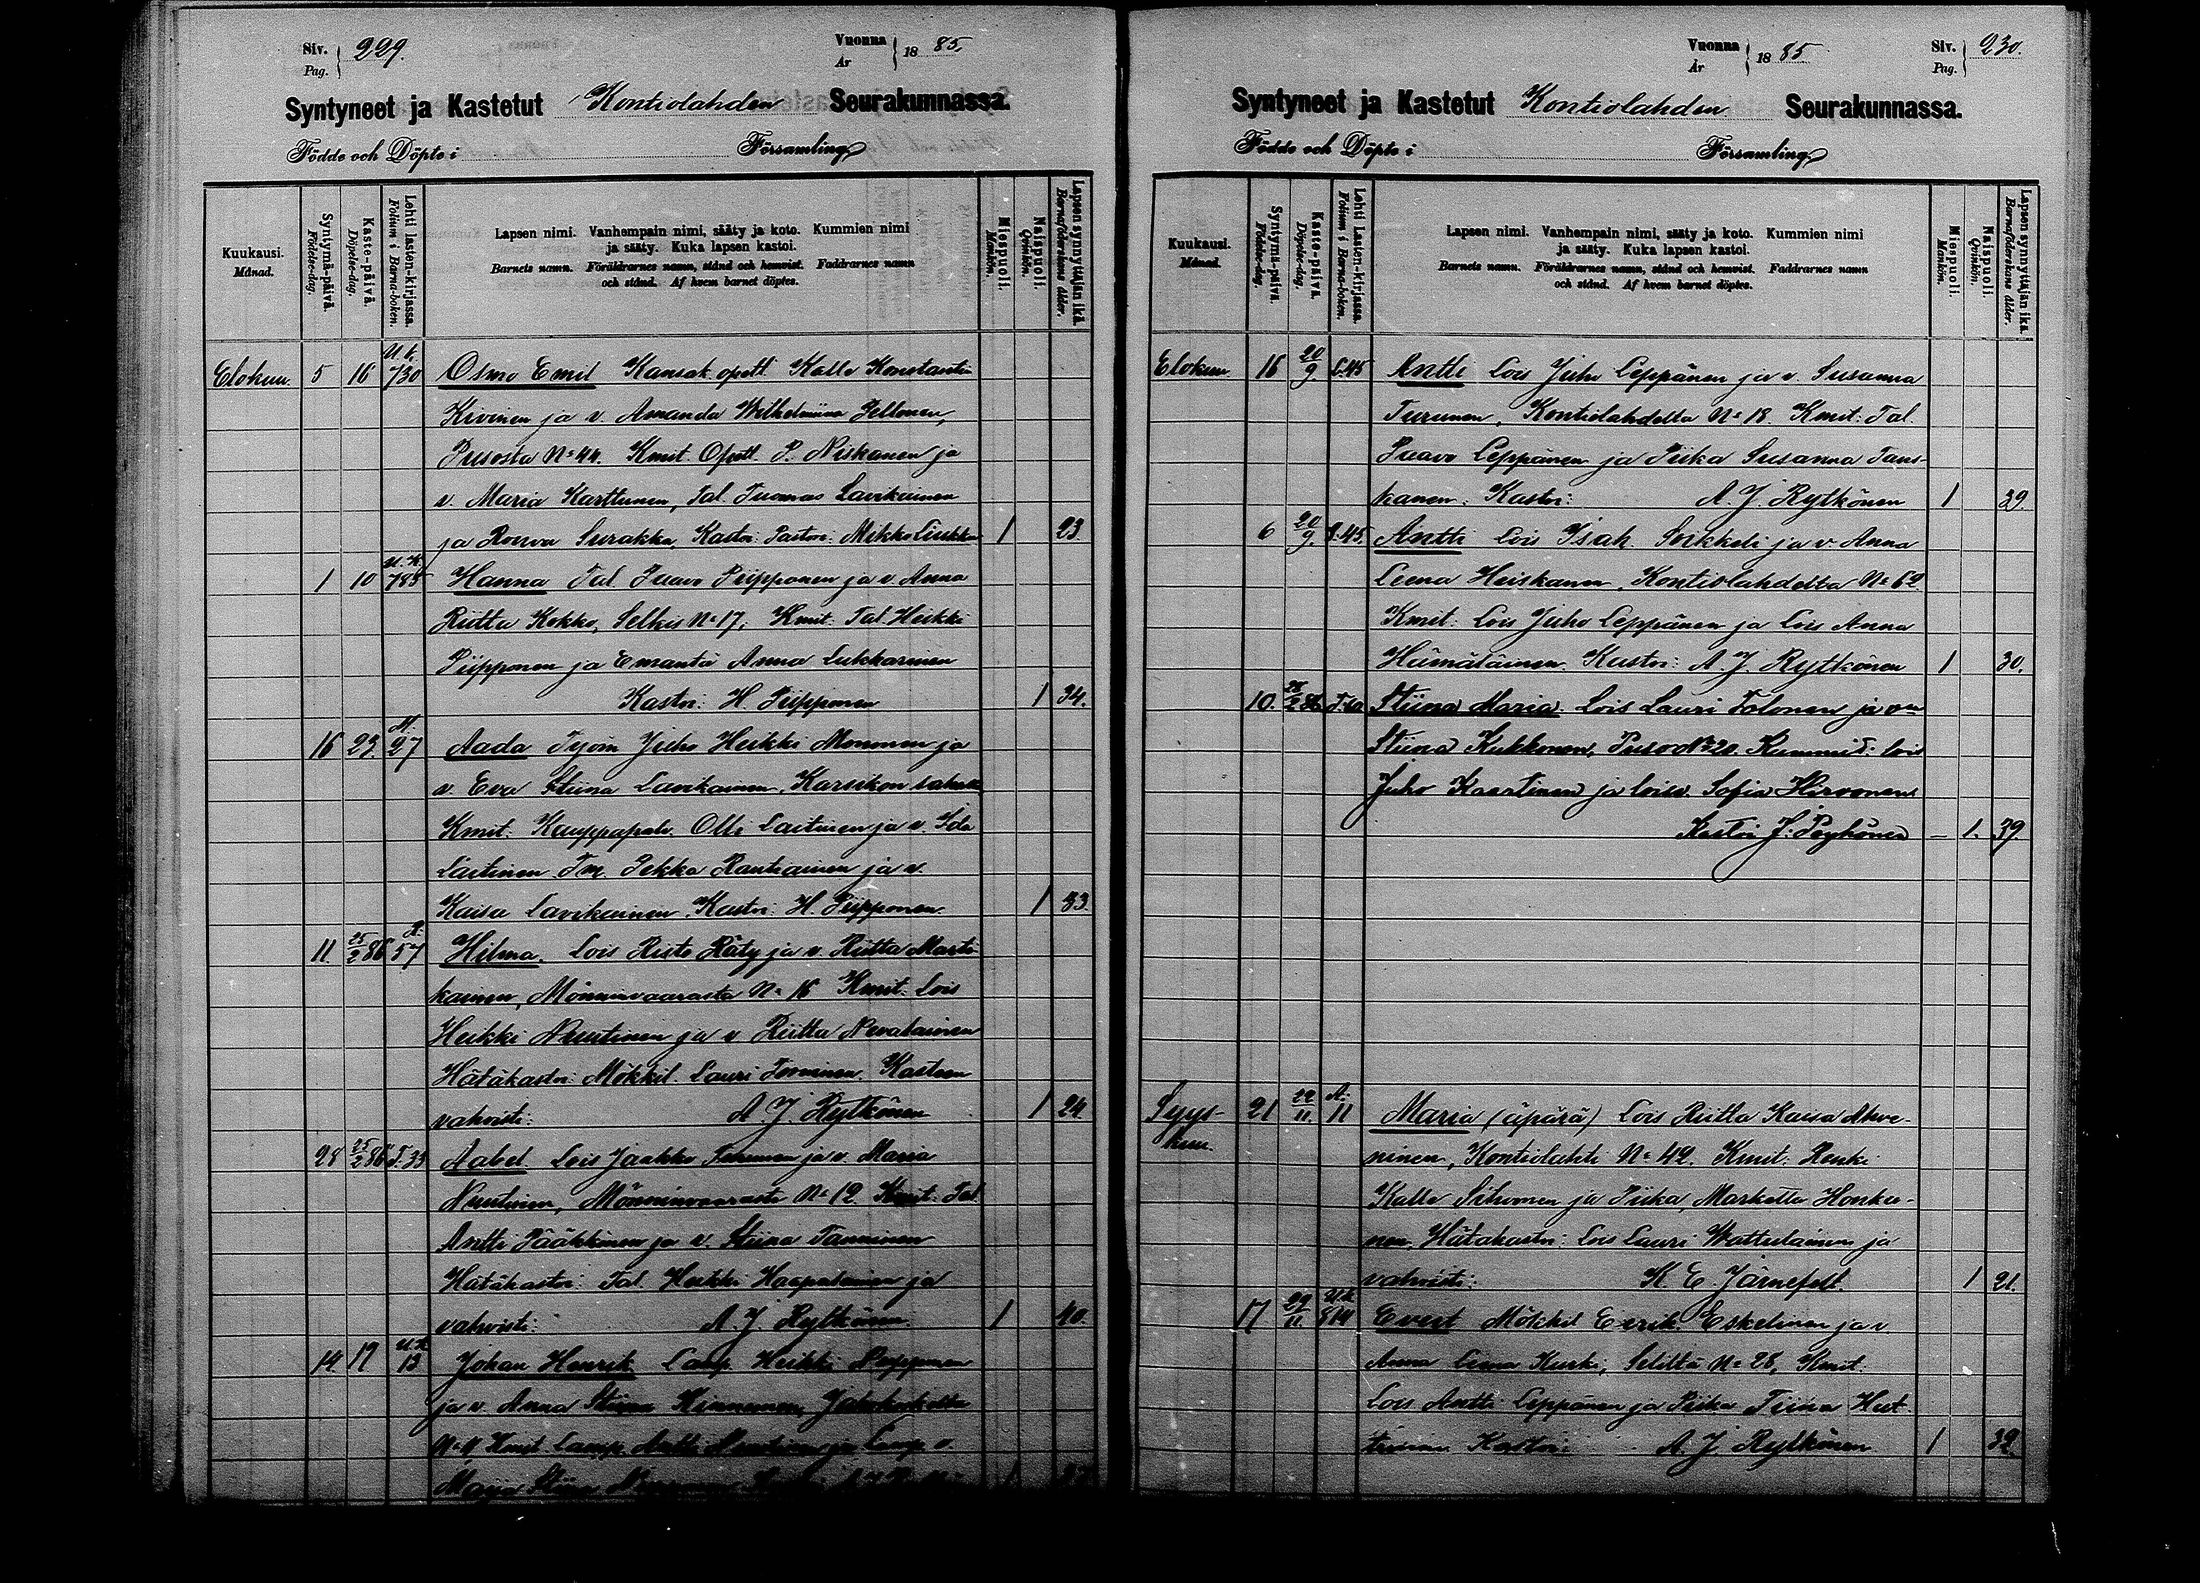 Siv. Pag. 229.
Vuonna År 1885.
Syntyneet ja Kastetut Kontiolahden Seurakunnassa.
Födde och Döpte i Församling
Kuukausi. Månad.
Syntymä-päivä. Födelse-dag.
Kaste-päivä. Döpelse-dag.
Lehti lasten-kirjassa. Folium i Barna-boken.
Lapsen nimi. Vanhempain nimi, sääty ja koto. Kummien nimi
ja sääty. Kuka lapsen kastoi.
Barnets namn. Föräldrarnes namn, stånd och hemvist. Faddrarnes namn
och stånd. Af hvem barnet döptes.
Miespuoli. Mankön.
Naispuoli. Qvinkön.
Lapsen synnyttäjän ikä. Barnaföderskans ålder.
Elokuu. 5 16 730 Osmo Emil Kansak. opett Kalle Konstantin
Kivinen ja v. Amanda Wilhelmiina Pellonen,
Pusosta No 44. Kmit. Opett. P. Niskanen ja
v. Maria Karttunen, Tal. Tuomas Lavikainen
ja Rouva Surakka, Kastoi: Pastori: Mikko Liukko 1 23
1 10 U.K. 785 Hanna Tal. Paavo Piipponen ja v Anna
Riitta Kokko, Selkie No 17. Kmit. Tal. Heikki
Piipponen ja Emäntä Anna Lukkarinen
Kastoi: H. Piipponen 1 34.
16 23. 27 Aada Työm Juho Heikki Mononen ja
v. Eva Stiina Lavikainen, Karsikon sahalta
Kmit: Kauppapalv. Olli Laitinen ja v. Ida
Laitinen Tm. Pekka Rantiainen ja v.
Kaisa Lavikainen. Kastoi: H. Piipponen. 1 33.
11. 25/2 86 57 Hilma. Lois Risto Räty ja v. Riitta Marti-
kainen, Mönninvaarasta No 16 Kmit: Lois
Heikki Nuutinen ja v Riitta Nevalainen
Hätäkastoi Mökkil. Lauri Toivinen. Kasteen
vahvisti: A. J. Rytkönen 1 24
28 25/2 86 T.33 Aabel Lois Jaakko Turunen ja v. Maria
Nuutinen, Mönninvaarasta No 12. Kmit: Tal.
Antti Pääkkönen ja v. Stiina Tanninen
Hätäkastoi: Tal. Heikki Haapalainen ja
vahvisti: A. J. Rytkönen 1 40.
14. 19 13 Johan Henrik Lamp. Heikki Piipponen
ja v. Anna Stiina Kinnunen, Jakokoskelta
No 9 Kmit. Lamp. Antti Nuutinen ja Lamp v.
Maija Stiina 1
Vuonna År 1885
Siv. Pag. 230.
Syntyneet ja Kastetut Kontiolahden Seurakunnassa.
Födde och Döpte i Församling
Kuukausi. Månad.
Syntymä-päivä. Födelse-dag.
Kaste-päivä. Döpelse-dag.
Lehti Lasten-kirjassa. Folium i Barna-boken.
Lapsen nimi. Vanhempain nimi, sääty ja koto. Kummien nimi
ja sääty. Kuka lapsen kastoi.
Barnets namn. Föräldrarnes namn, stånd och hemvist. Faddrarnes namn
och stånd. Af hvem barnet döptes.
Miespuoli. Mankön.
Naispuoli. Qvinkön.
Lapsen synnyttäjän ikä. Barnaföderskans ålder.
Elokuu 16 20/9. L.45 Antti Lois Juho Leppänen ja v. Susanna
Turunen, Kontiolahdelta No 18. Kmit: Tal.
Paavo Leppänen ja Piika Susanna Tans-
kanen. Kastoi: A. J. Rytkönen 1 39.
6 20/9. S.45. Antti Lois Isak Soikkeli ja v. Anna
Leena Heiskanen, Kontiolahdelta No 62
Kmit: Lois Juho Leppänen ja Lois Anna
Hämäläinen. Kastoi: A. J. Rytkönen 1 30.
10. Stiina Maria. Lois Lauri Tolonen ja vm
Stiina Kukkonen, Puso No 20. Kummit: lois
Juho Kaartinen ja loisv. Sofia Hirvonen
Kastoi J. Pöyhönen - 1. 39
Syys- 21 22/11. 11 Maria (äpärä) Lois Riitta Kaisa Ahve-
kuu. ninen, Kontiolahti No 42. Kmit: Renki
Kalle Sihvonen ja Piika, Marketta Honka-
nen, Hätäkastoi: Lois Lauri Wattulainen ja
vahvisti: K. E. Järnefelt. 1 21.
17 29/11. U.K. 814 Evert Mökkil Eerik Eskelinen ja v.
Anna Leena Kurki, Seliltä No 28, Kmit.
Lois Antti Leppänen ja Piika Tiina Hut-
tunen Kastoi: A. J. Rytkönen 1 32.